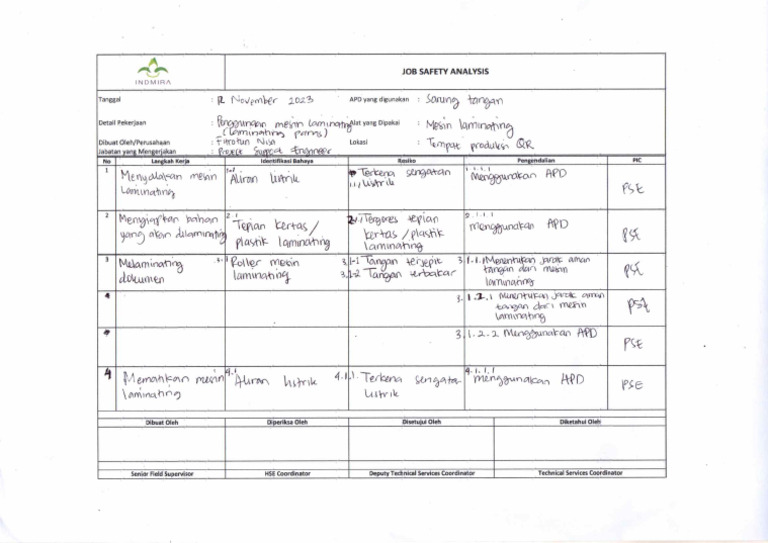 INDMIRA
JOB SAFETY ANALYSIS
Tanggal : 12 November 2023 APD yang digunakan : Sarung tangan
Detail Pekerjaan : Penggunaan mesin laminating Alat yang Dipakai : Mesin laminating
(laminating panas)
Dibuat Oleh/Perusahaan : Nisa Lokasi : Tempat produksi QR
Jabatan yang Mengerjakan : Project Support Engineer
No Langkah Kerja Identifikasi Bahaya Resiko Pengendalian PIC
1 Menyalakan mesin laminating
1.1 Aliran listrik
1.1.1 Terkena sengatan listrik
1.1.1.1 Menggunakan APD
PSE
2 Mengiapkan bahan yang akan dilaminating
2.1 Tepian kertas/ plastik laminating
2.1.1 Tergores tepian kertas/plastik laminating
2.1.1.1 Menggunakan APD
PSE
3 Melaminating dokumen
3.1 Roller mesin laminating
3.1.1 Tangan terjepit
3.1.2 Tangan terbakar
3.1.1.1 Menentukan jarak aman tangan dari mesin laminating
PSE
3.1.2.1 Menentukan jarak aman tangan dari mesin laminating
PSE
3.1.2.2 Menggunakan APD
PSE
4 Mematikan mesin laminating
4.1 Aliran listrik
4.1.1. Terkena sengata- Listrik
4.1.1.1 Menggunakan APD
PSE
Dibuat Oleh Diperiksa Oleh Disetujui Oleh Diketahui Oleh
Senior Field Supervisor HSE Coordinator Deputy Technical Services Coordinator Technical Services Coordinator